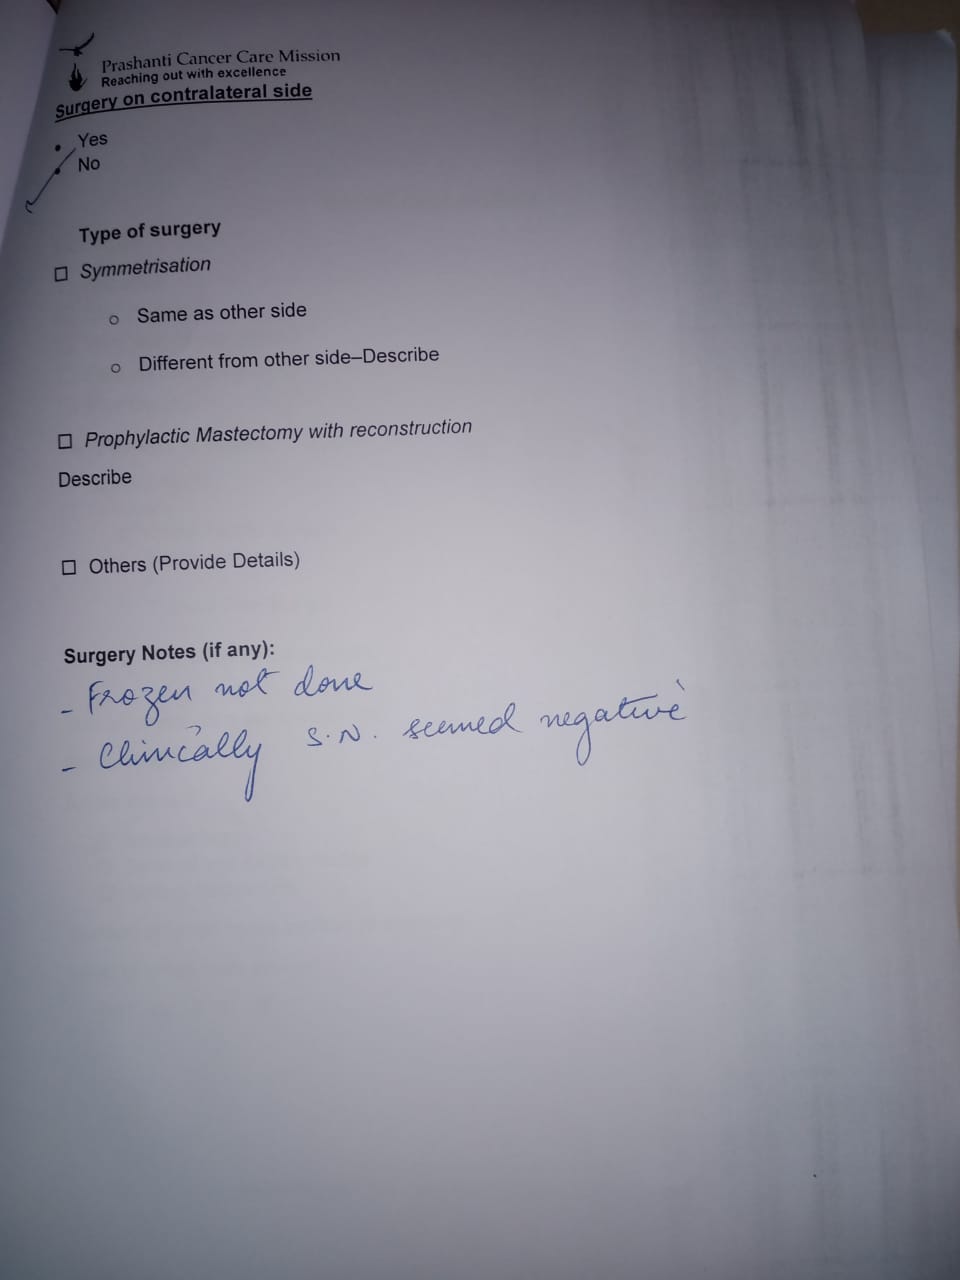 Prashanti Cancer Care Mission
Reaching out with excellence
Surgery on contralateral side
• Yes
• No
Type of surgery
☐ Symmetrisation
○ Same as other side
○ Different from other side–Describe
☐ Prophylactic Mastectomy with reconstruction
Describe
☐ Others (Provide Details)
Surgery Notes (if any):
- Frozen not done
- Clinically S.N. seemed negative